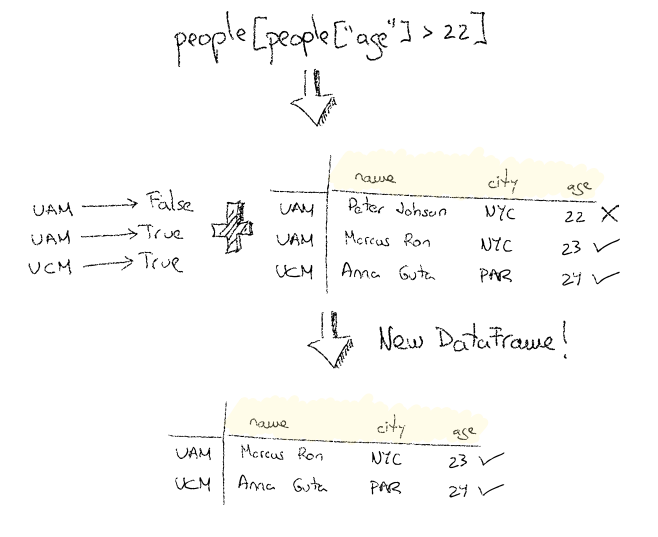 people[people["age"] > 22]
name city age
UAM → False
UAM → True
UCM → True
UAM Peter Johson NYC 22 ✗
UAM Marcus Ron NYC 23 ✓
UCM Anna Guta PAR 24 ✓
New DataFrame!
name city age
UAM Marcus Ron NYC 23 ✓
UCM Anna Guta PAR 24 ✓